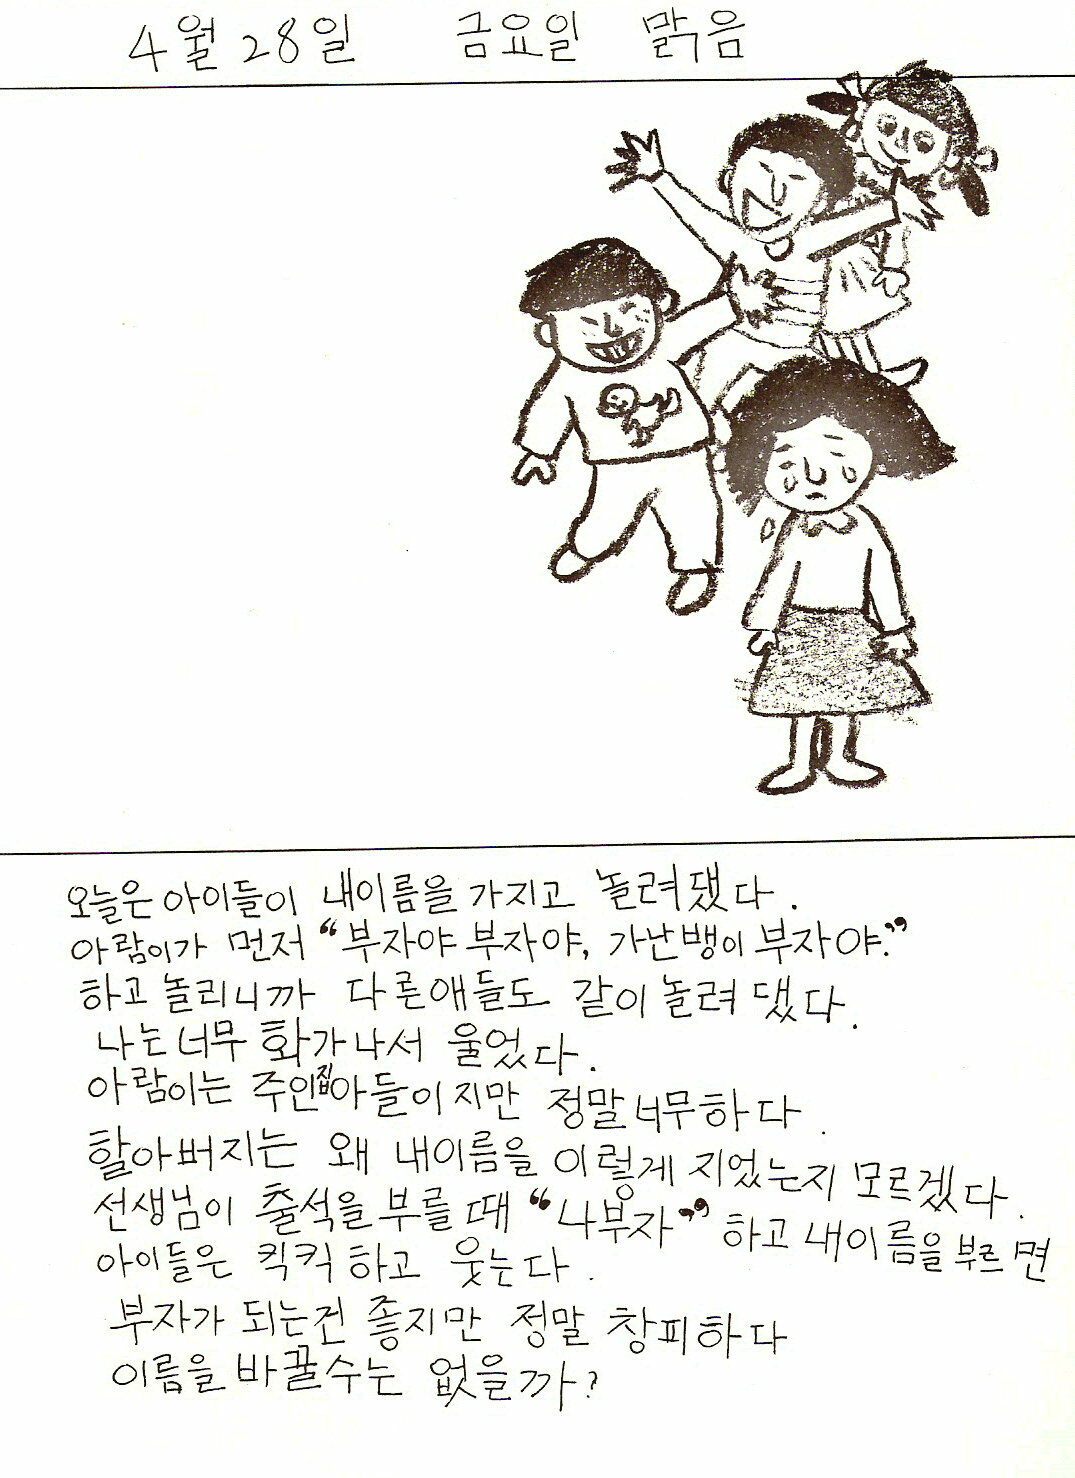 4월 28일 금요일 맑음
오늘은 아이들이 내이름을 가지고 놀려댔다.
아람이가 먼저 “부자야 부자야, 가난뱅이 부자야.”
하고 놀리니까 다른애들도 같이 놀려 댔다.
나는 너무 화가나서 울었다.
아람이는 주인집아들이지만 정말 너무하다.
할아버지는 왜 내이름을 이렇게 지었는지 모르겠다.
선생님이 출석을 부를 때 “나부자” 하고 내이름을 부르면
아이들은 킥킥 하고 웃는다.
부자가 되는건 좋지만 정말 창피하다
이름을 바꿀수는 없을까?